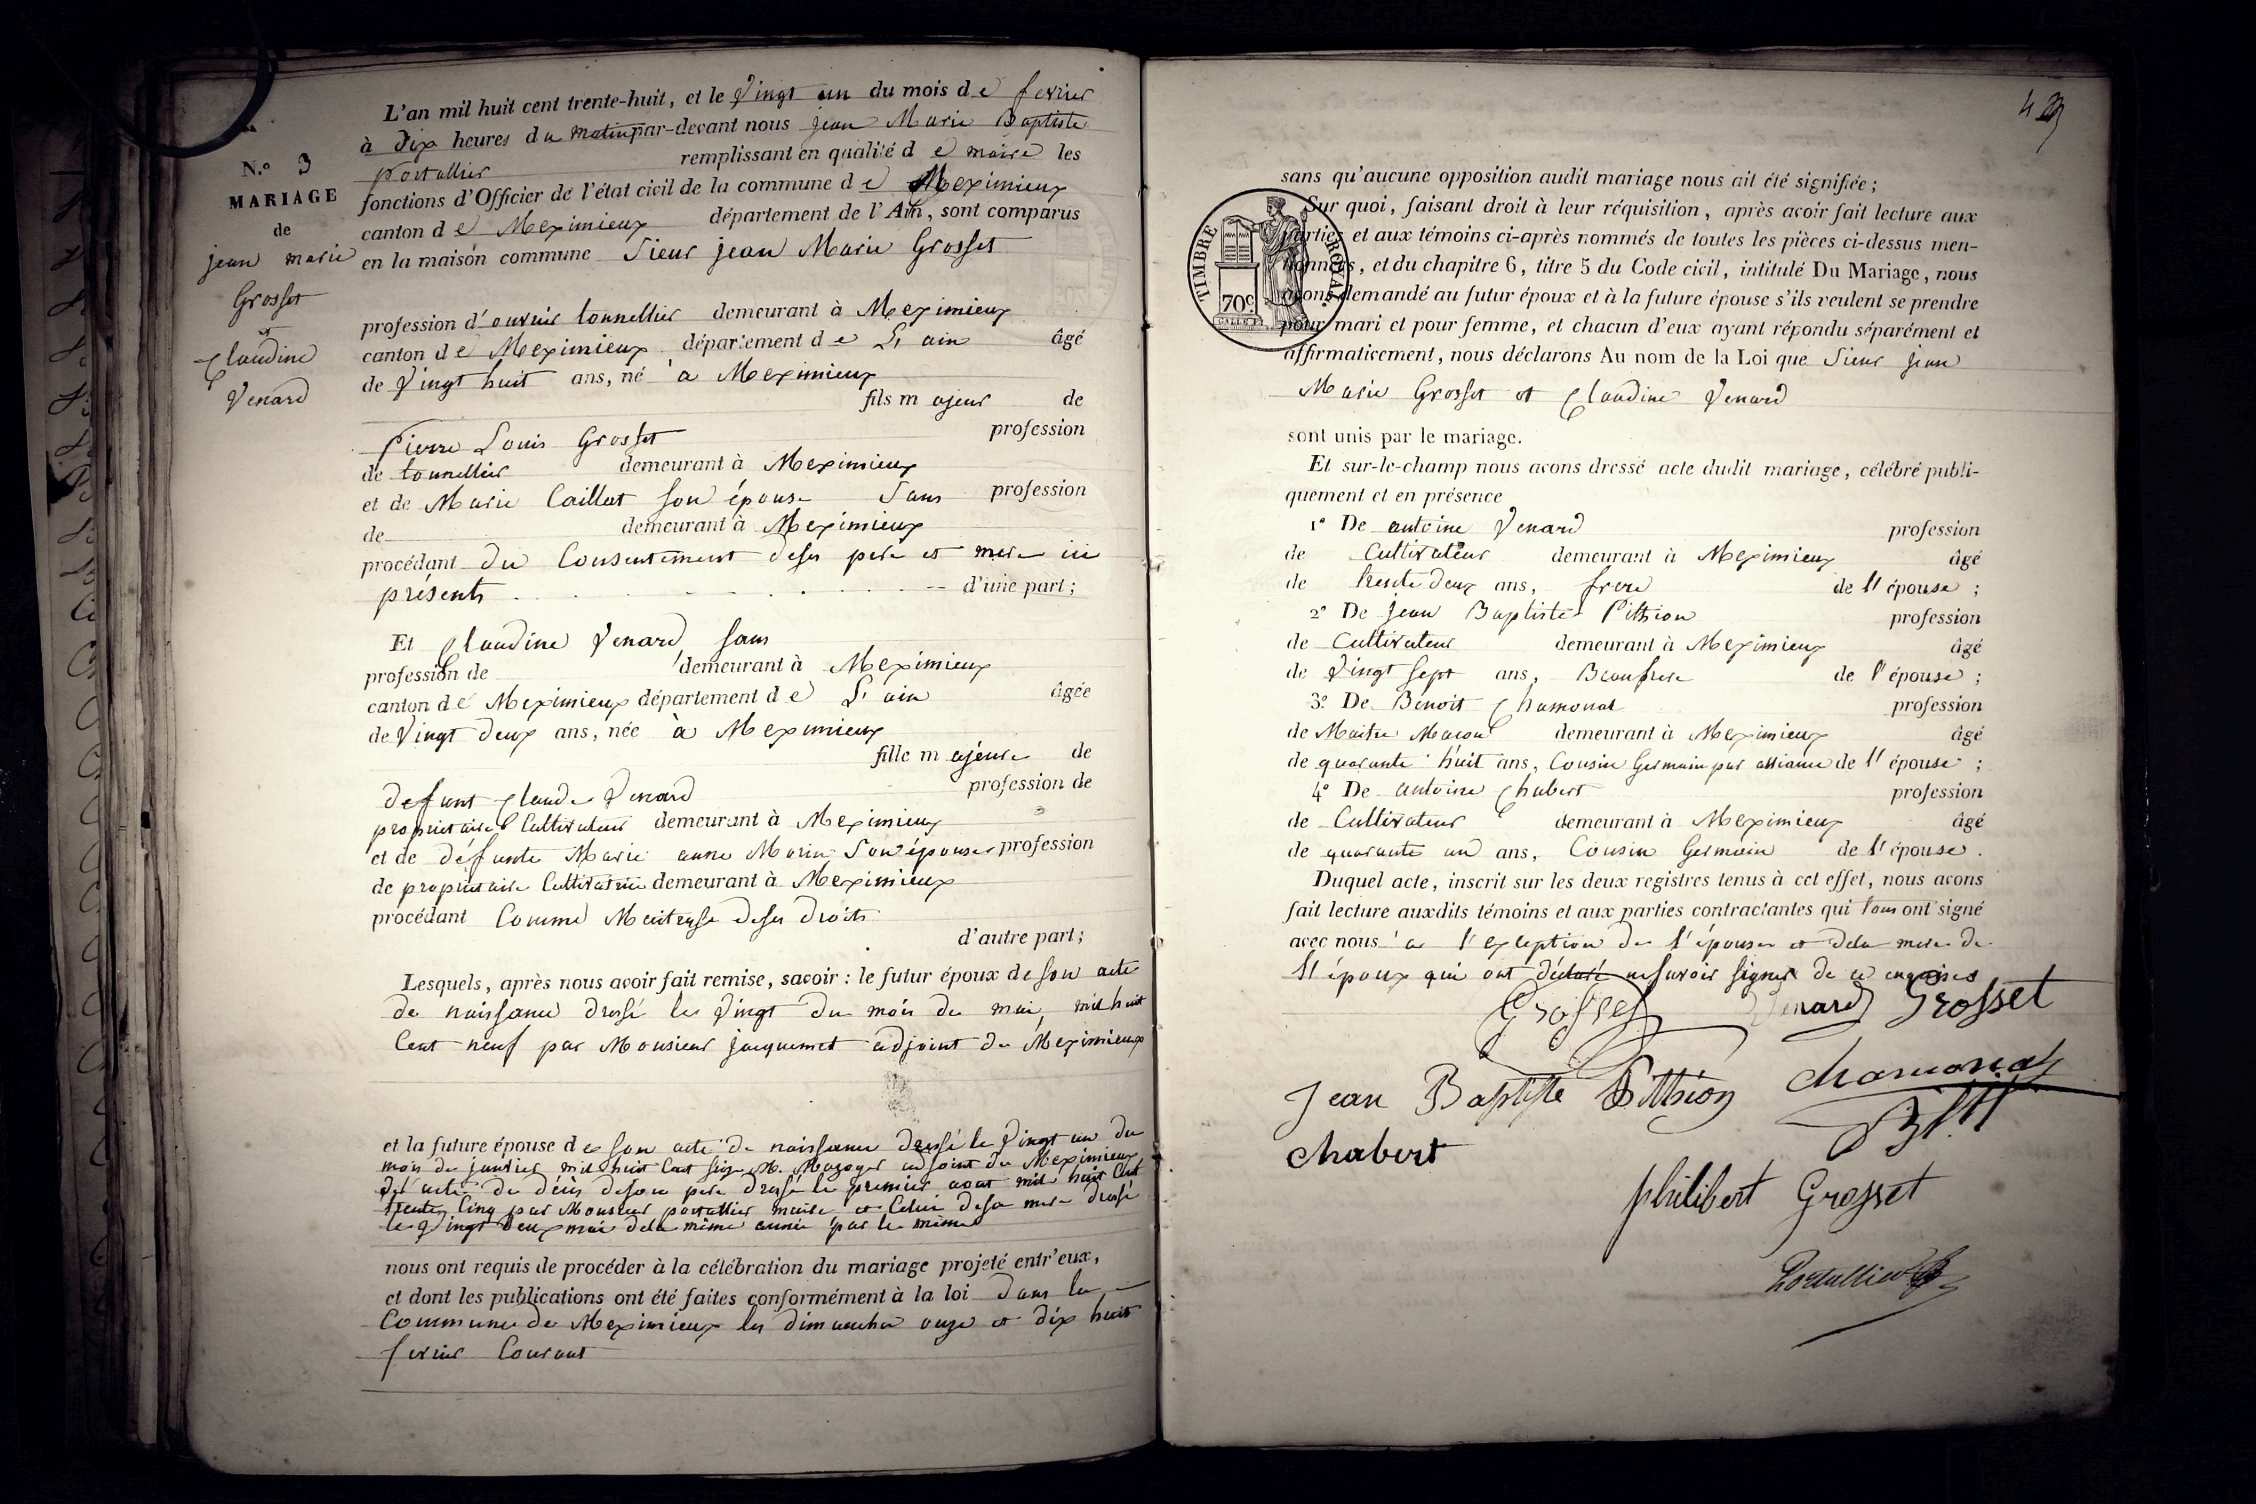 L'an mil huit cent trente-huit, et le Vingt un du mois de fevrier
à Dix heures du matin par-devant nous jean Marie Baptiste
portallier remplissant en qualité de maire les
N.º 3
fonctions d'Officier de l'état civil de la commune de Meximieux
MARIAGE
canton de Meximieux département de l'Ain, sont comparus
de
en la maison commune Sieur jean Marie Grosset
jean marie
Grosset
et
Claudine
Venard
profession d'ouvrier tonnellier demeurant à Meximieux
canton de Meximieux département de L'ain âgé
de Vingt huit ans, né à Meximieux
fils majeur de
Pierre Louis Grosset profession
de tonnellier demeurant à Meximieux
et de Marie Caillat son épouse Sans profession
de demeurant à Meximieux
procédant du Consentement deses pere et mere ici
présents d'une part;
Et Claudine Venard, sans
profession de demeurant à Meximieux
canton de Meximieux département de L'ain âgée
de Vingt deux ans, née à Meximieux
fille majeure de
defunt Claude Venard profession de
propriétaire Cultivateur demeurant à Meximieux
et de défunte Marie anne Morin Son épouse profession
de propriétaire Cultivatrice demeurant à Meximieux
procédant Comme Maitresse deses droits
d'autre part;
Lesquels, après nous avoir fait remise, savoir : le futur époux de son acte
de naissance dressé le Vingt du mois de mai, mil huit
Cent neuf par Monsieur jacquemet adjoint de Meximieux
et la future épouse de son acte de naissance dressé le Vingt un du
mois de janvier mil huit Cent seize adjoint de Meximieux
acte de décès deson pere dressé le premier aout mil huit Cent
trente Cinq par Monsieur portallier maire et Celui desa mere dressé
le Vingt Deux mai dela même année par le même
nous ont requis de procéder à la célébration du mariage projeté entr'eux,
et dont les publications ont été faites conformément à la loi Dans la
Commune de Meximieux les dimanche onze et dix huit
fevrier Courant
sans qu'aucune opposition audit mariage nous ait été signifiée;
Sur quoi, faisant droit à leur réquisition, après avoir fait lecture aux
parties et aux témoins ci-après nommés de toutes les pièces ci-dessus men-
tionnées, et du chapitre 6, titre 5 du Code civil, intitulé Du Mariage, nous
avons demandé au futur époux et à la future épouse s'ils veulent se prendre
pour mari et pour femme, et chacun d'eux ayant répondu séparément et
affirmativement, nous déclarons Au nom de la Loi que Sieur jean
TIMBRE ROYAL
70c
Marie Grosset et Claudine Venard
sont unis par le mariage.
Et sur-le-champ nous avons dressé acte dudit mariage, célébré publi-
quement et en présence
1º De antoine Venard profession
de Cultivateur demeurant à Meximieux âgé
de trente deux ans, frere de l'épouse ;
2º De Jean Baptiste Pitthion profession
de Cultivateur demeurant à Meximieux âgé
de Vingt Sept ans, Beaufrere de l'épouse ;
3º De Benoit Chamonal profession
de Maitre Macon demeurant à Meximieux âgé
de quarante huit ans, Cousin Germain par alliance de l'épouse ;
4º De antoine Chabert profession
de Cultivateur demeurant à Meximieux âgé
de quarante un ans, Cousin Germain de l'épouse.
Duquel acte, inscrit sur les deux registres tenus à cet effet, nous avons
fait lecture auxdits témoins et aux parties contractantes qui tous ont signé
avec nous à l'exeption de l'épouse et dela mere de
L'époux qui ont déclaré nesavoir signer de ce enquises
Grosset Venard Grosset
Jean Baptiste Pitthion Chamonal
Chabert
philibert Grosset
Portallier